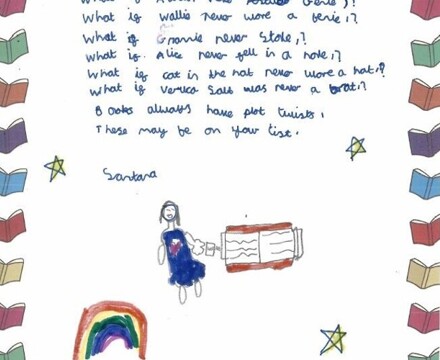 What if never Genie,?
What if Wallis never wore a fenie,?
What if Grannie never Stole,?
What if. Alice never fell in a hole,?
What if cat in the hat never wore a hat,?
What if Veruca Salt was never a brat,?
Books always have plot twists,
These may be on your list.
Santana